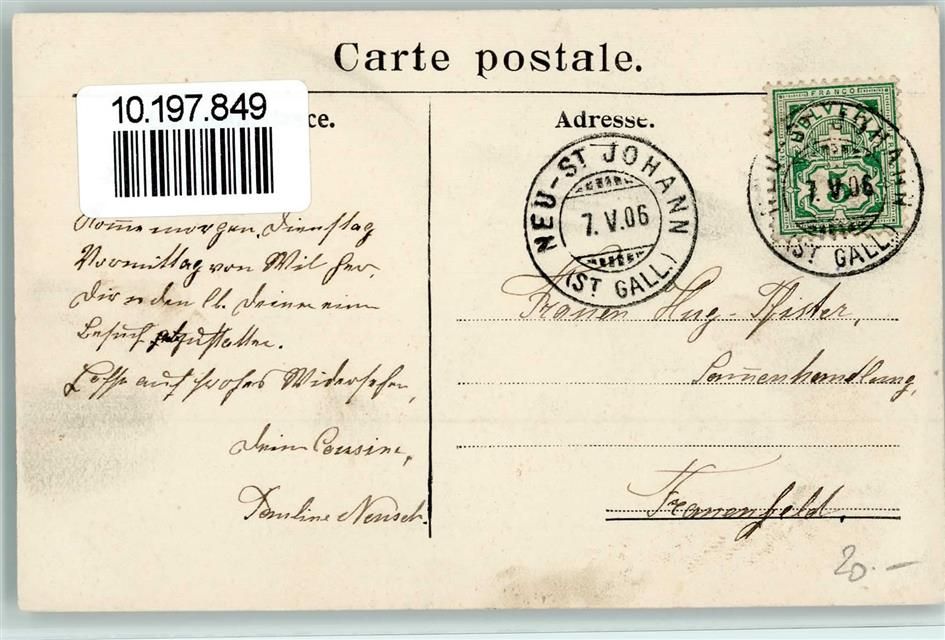 Carte postale.
10.197.849
ce.
Adresse.
FRANCO
HELVETIA
5
NEU-ST JOHANN
7. V. 06
(ST GALL.)
NEU-ST JOHANN
7. V. 06
(ST GALL.)
Komme morgen, Dienstag
Vormittag von Wil her,
Dir u den lb. Deinen einen
Besuch abzustatten.
Hoffe auf frohes Wiedersehen,
Deine Cousine,
Pauline
Frauen Hug-
Samenhandlung,
Frauenfeld.
20.-